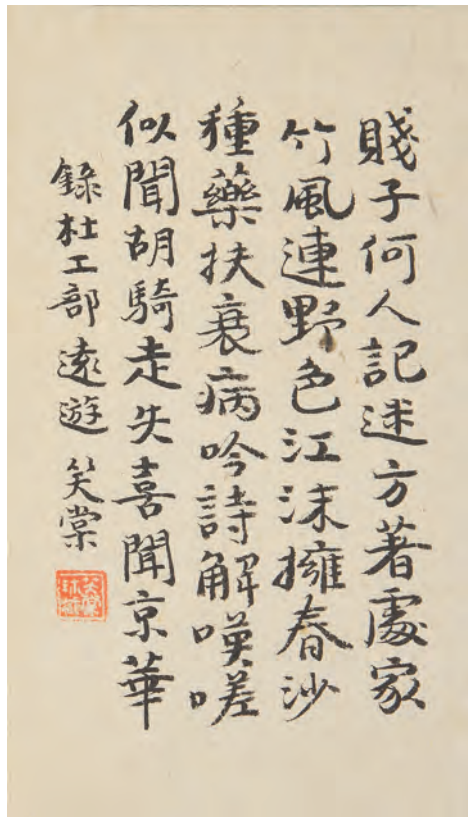 賤子何人記迷方著處家
竹風連野色江沫擁春沙
種藥扶衰病吟詩解嘆嗟
似聞胡騎走失喜聞京華
錄杜工部遠遊 笑棠